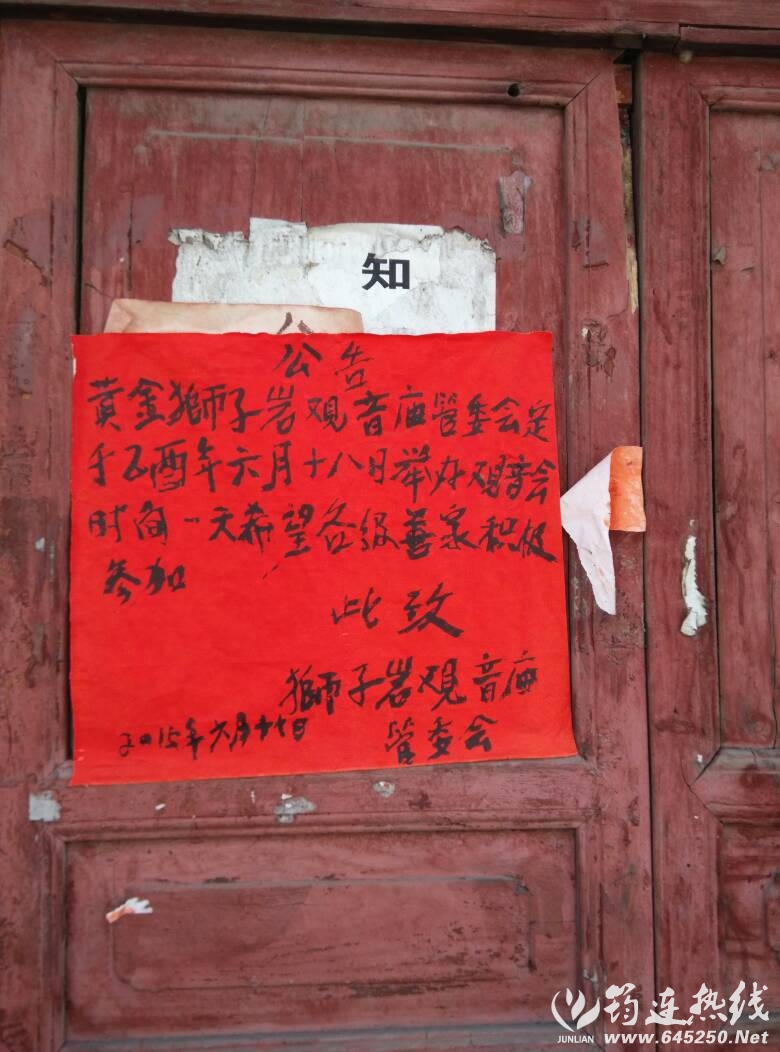 知
公
公告
黄金獅子岩观音庙管委会定
于乙酉年六月十八日举办观音会
时间一天希望各级善家积极
参加
此致
獅子岩观音庙
管委会
2015年六月十七日
筠连热线
JUNLIAN
www.645250.Net